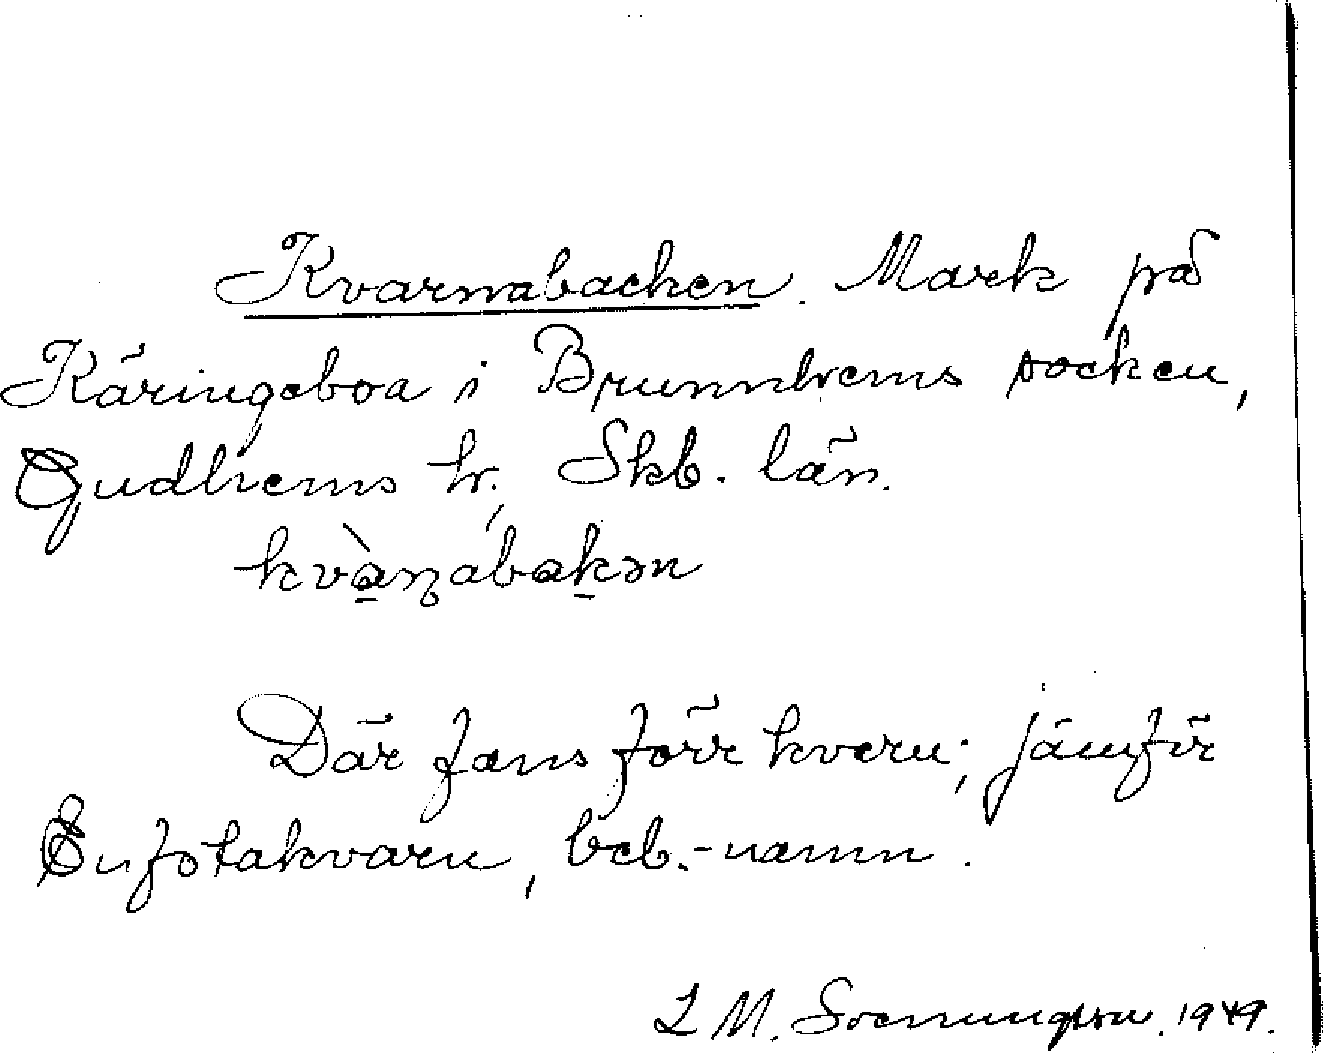 Kvarnabacken. Mark på
Käringeboa i Brunnhems socken,
Gudhems hr, Skb. län.
kvàɳabakən
Där fans förr kvarn; jämför
Enfotakvarn, beb.-namn.
L M. Svenungsson. 1949.